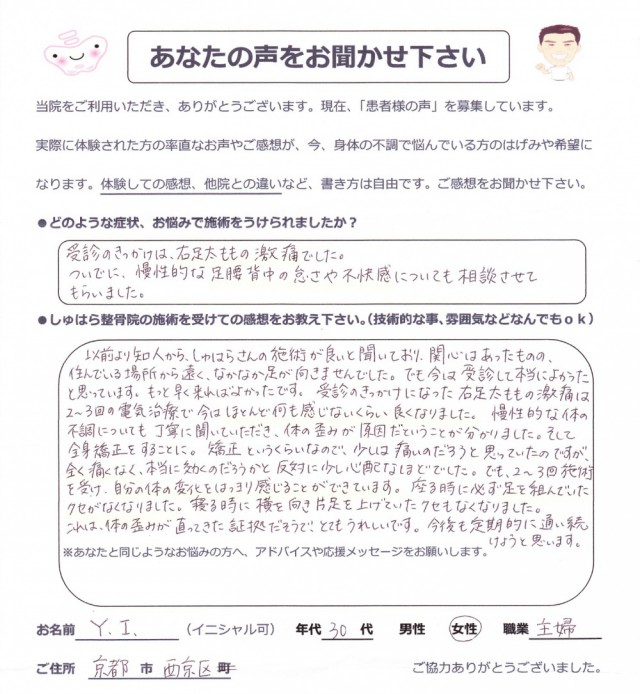 あなたの声をお聞かせ下さい
当院をご利用いただき、ありがとうございます。現在、「患者様の声」を募集しています。
実際に体験された方の率直なお声やご感想が、今、身体の不調で悩んでいる方のはげみや希望に
なります。体験しての感想、他院との違いなど、書き方は自由です。ご感想をお聞かせ下さい。
●どのような症状、お悩みで施術をうけられましたか？
受診のきっかけは、右足太ももの激痛でした。
ついでに、慢性的な足腰背中の怠さや不快感についても相談させて
もらいました。
●しゅはら整骨院の施術を受けての感想をお教え下さい。（技術的な事、雰囲気などなんでもｏｋ）
以前より知人から、しゅはらさんの施術が良いと聞いており、関心はあったものの、
住んでいる場所から遠く、なかなか足が向きませんでした。でも今は受診して本当によかった
と思っています。もっと早く来ればよかったです。受診のきっかけになった右足太ももの激痛は
2〜3回の電気治療で今はほとんど何も感じないくらい良くなりました。慢性的な体の
不調についても丁寧に聞いていただき、体の歪みが原因だということが分かりました。そして
全身矯正をすることに。矯正というくらいなので、少しは痛いのだろうと思っていたのですが、
全く痛くなく、本当に効くのだろうかと反対に少し心配なほどでした。でも、2〜3回施術
を受け、自分の体の変化をはっきり感じることができています。座る時に必ず足を組んでいた
クセがなくなりました。寝る時に横を向き片足を上げていたクセもなくなりました。
これは、体の歪みが直ってきた証拠だそうで、とてもうれしいです。今後も定期的に通い続
けようと思います。
※あなたと同じようなお悩みの方へ、アドバイスや応援メッセージをお願いします。
お名前 Y.I. （イニシャル可） 年代 30 代 男性 女性 職業 主婦
ご住所 京都 市 西京区 町 ご協力ありがとうございました。